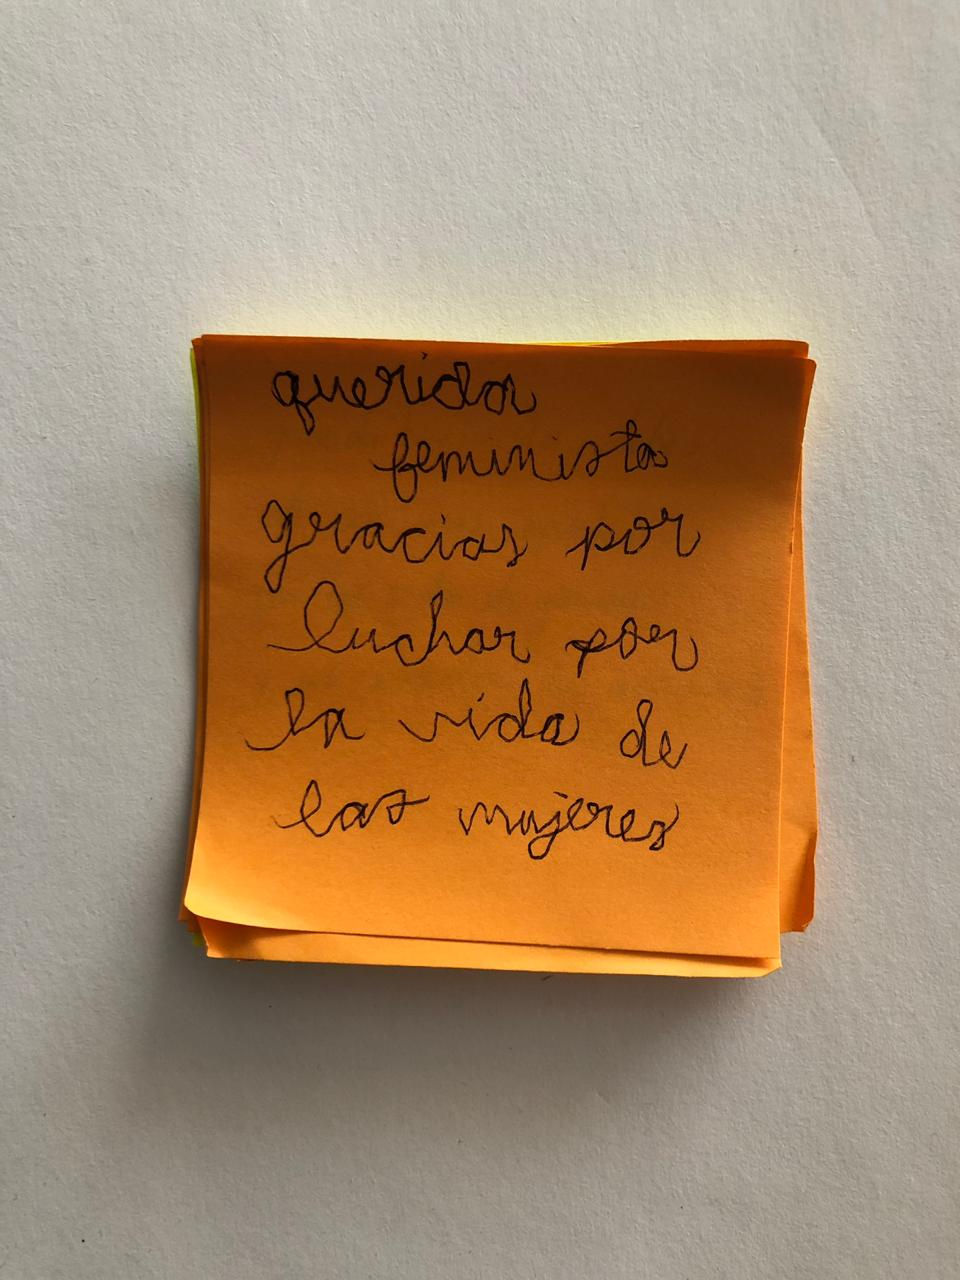 querida
feminista
gracias por
luchar por
la vida de
las mujeres